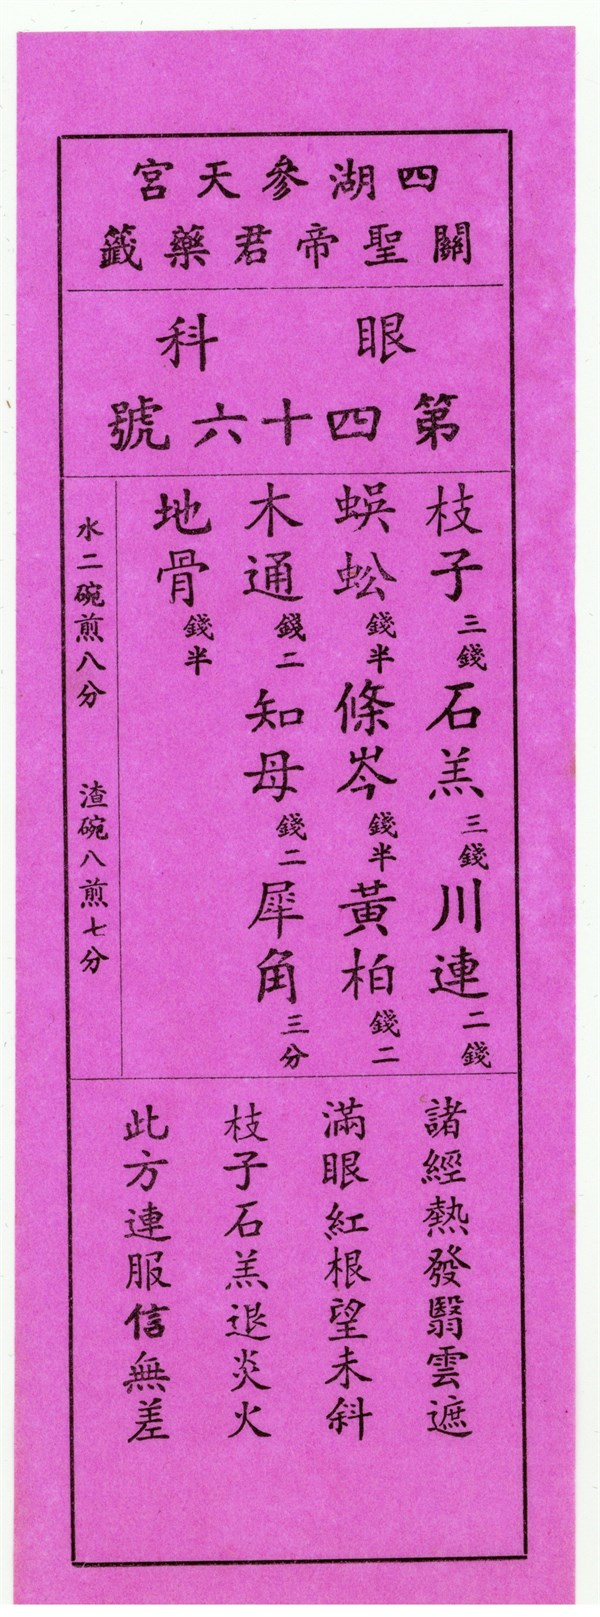 四湖參天宮
關聖帝君藥籤
眼科
第四十六號
枝子三錢 石羔三錢 川連二錢
蜈蚣錢半 條岑錢半 黃柏錢二
木通錢二 知母錢二 犀角三分
地骨錢半
水二碗煎八分 渣碗八煎七分
諸經熱發翳雲遮
滿眼紅根望未斜
枝子石羔退炎火
此方連服信無差